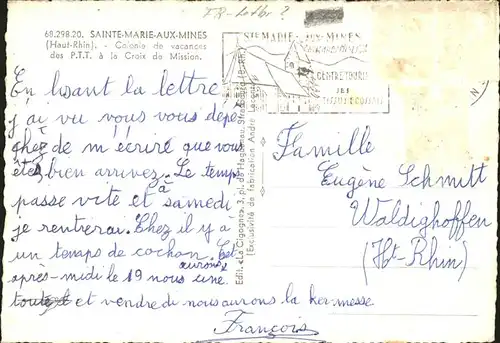 FR-Lettre ?
68.298.20. SAINTE-MARIE-AUX-MINES
(Haut-Rhin). - Colonie de vacances
des P.T.T. à la Croix de Mission.
STE MARIE AUX-MINES
CENTRE TOURIS
DES
En lisant la lettre
j'ai vu vous vous dépe-
chez de m'écrire que vous
êtes bien arrivez. Le temps
passe vite et à samedi
je rentrerai. Chez il y à
un temps de cochon. Cet
apres-midi le 19 nous aurons une
et vendredi nous aurons la ker-messe
François
Edit. «La Cigogne», 3, pl. de Haguenau, Strasbourg (B.-Rh.)
(Exclusivité de fabrication André Leconte)
Famille
Eugène Schmitt
Waldighoffen
(Ht-Rhin)